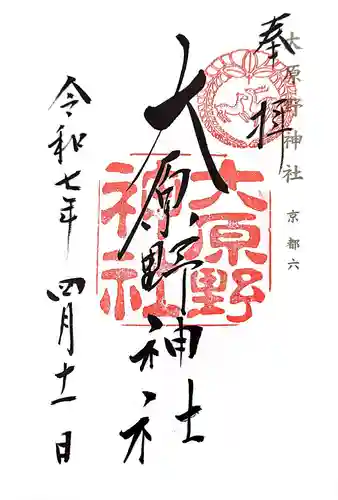 奉拝
大原野神社
京都六
大原野神社
大原野神社
令和七年
四月十一日